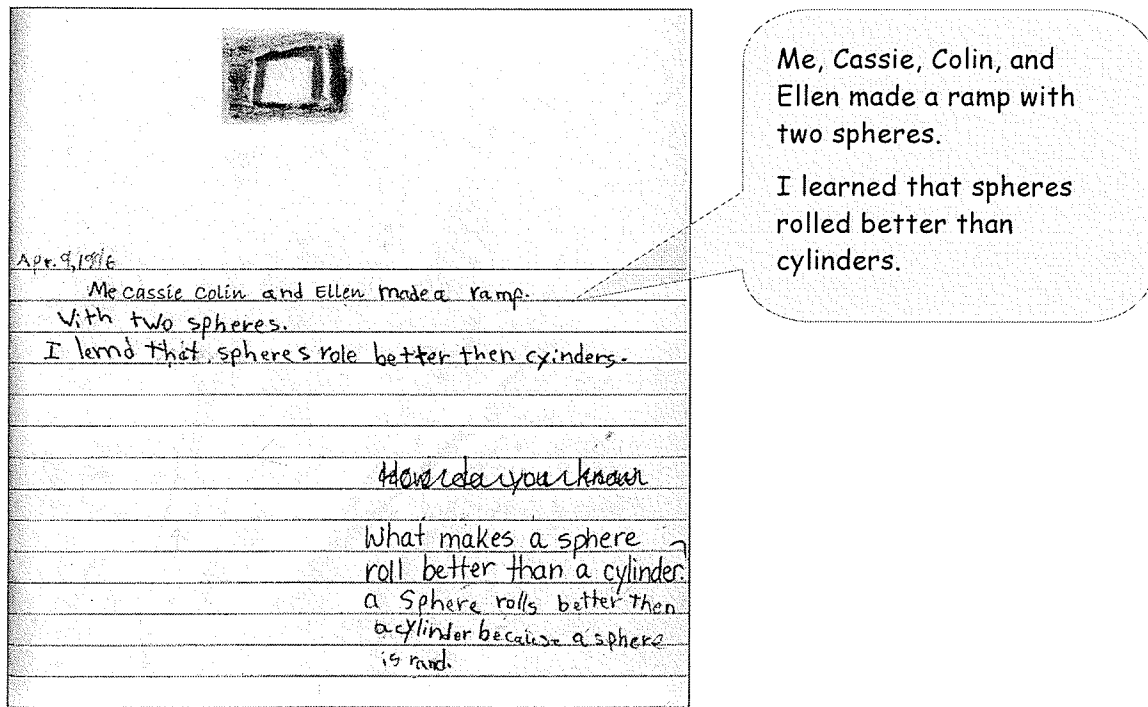 Apr. 9, 1996
Me Cassie Colin and Ellen made a ramp.
With two spheres.
I lernd that spheres role better then cyinders.
How do you know
What makes a sphere
roll better than a cylinder?
a Sphere rolls better then
a cylinder because a sphere
is rand.
Me, Cassie, Colin, and
Ellen made a ramp with
two spheres.
I learned that spheres
rolled better than
cylinders.